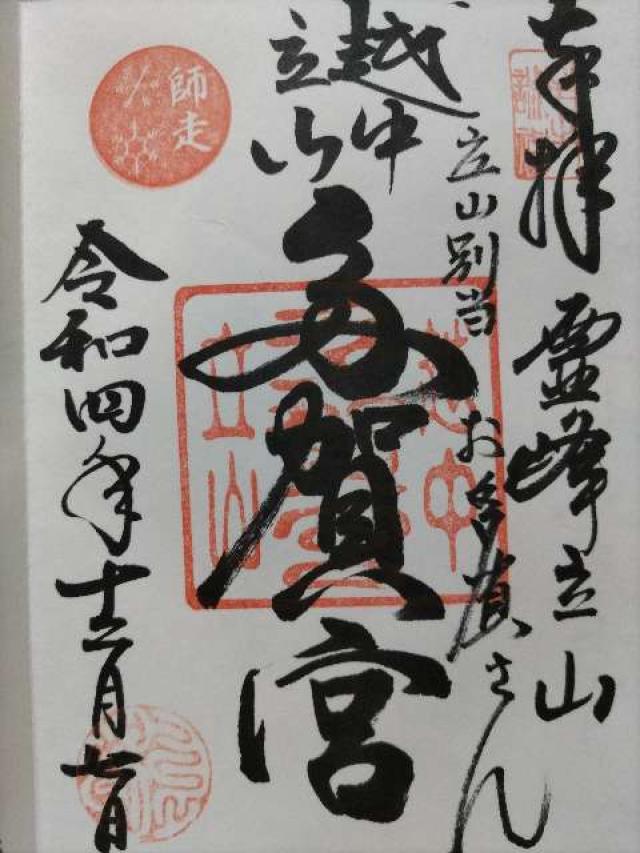 奉拝
霊峰立山
立山別当
お多賀さん
越中
立山
多賀宮
師走
令和四年十二月七日
越中
立山